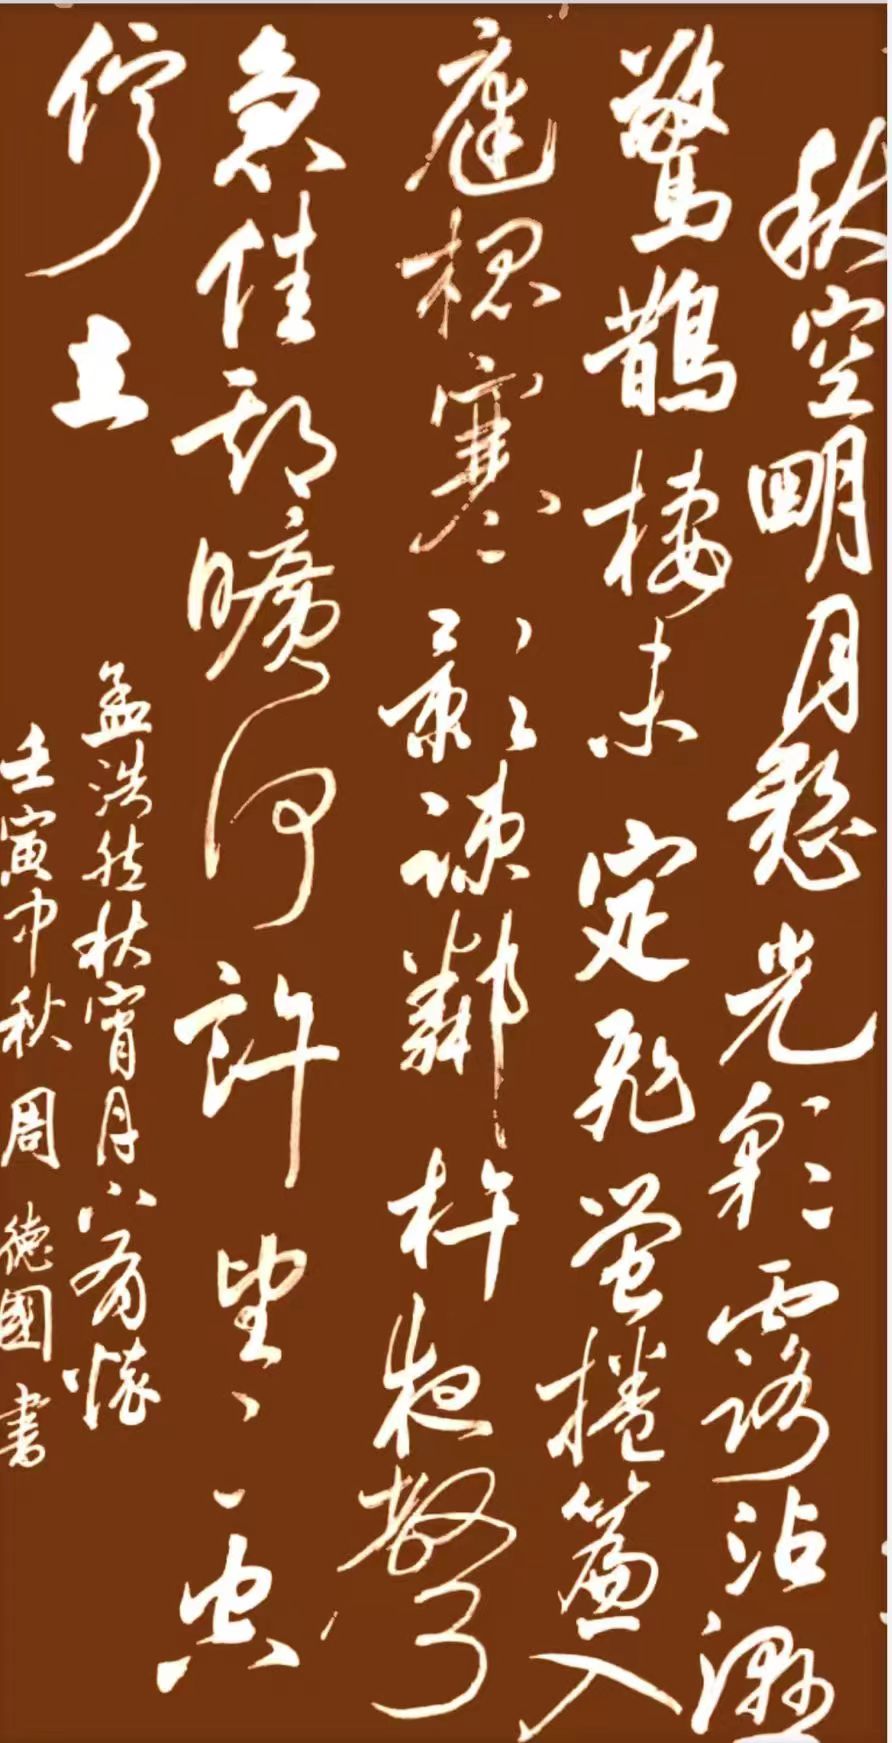 秋空明月懸光彩露沾濕
驚鵲棲未定飛螢捲簾入
庭槐寒影疎鄰杵夜聲
急佳期曠何許望望空
佇立
孟浩然秋宵月下有懷
壬寅中秋周德國書